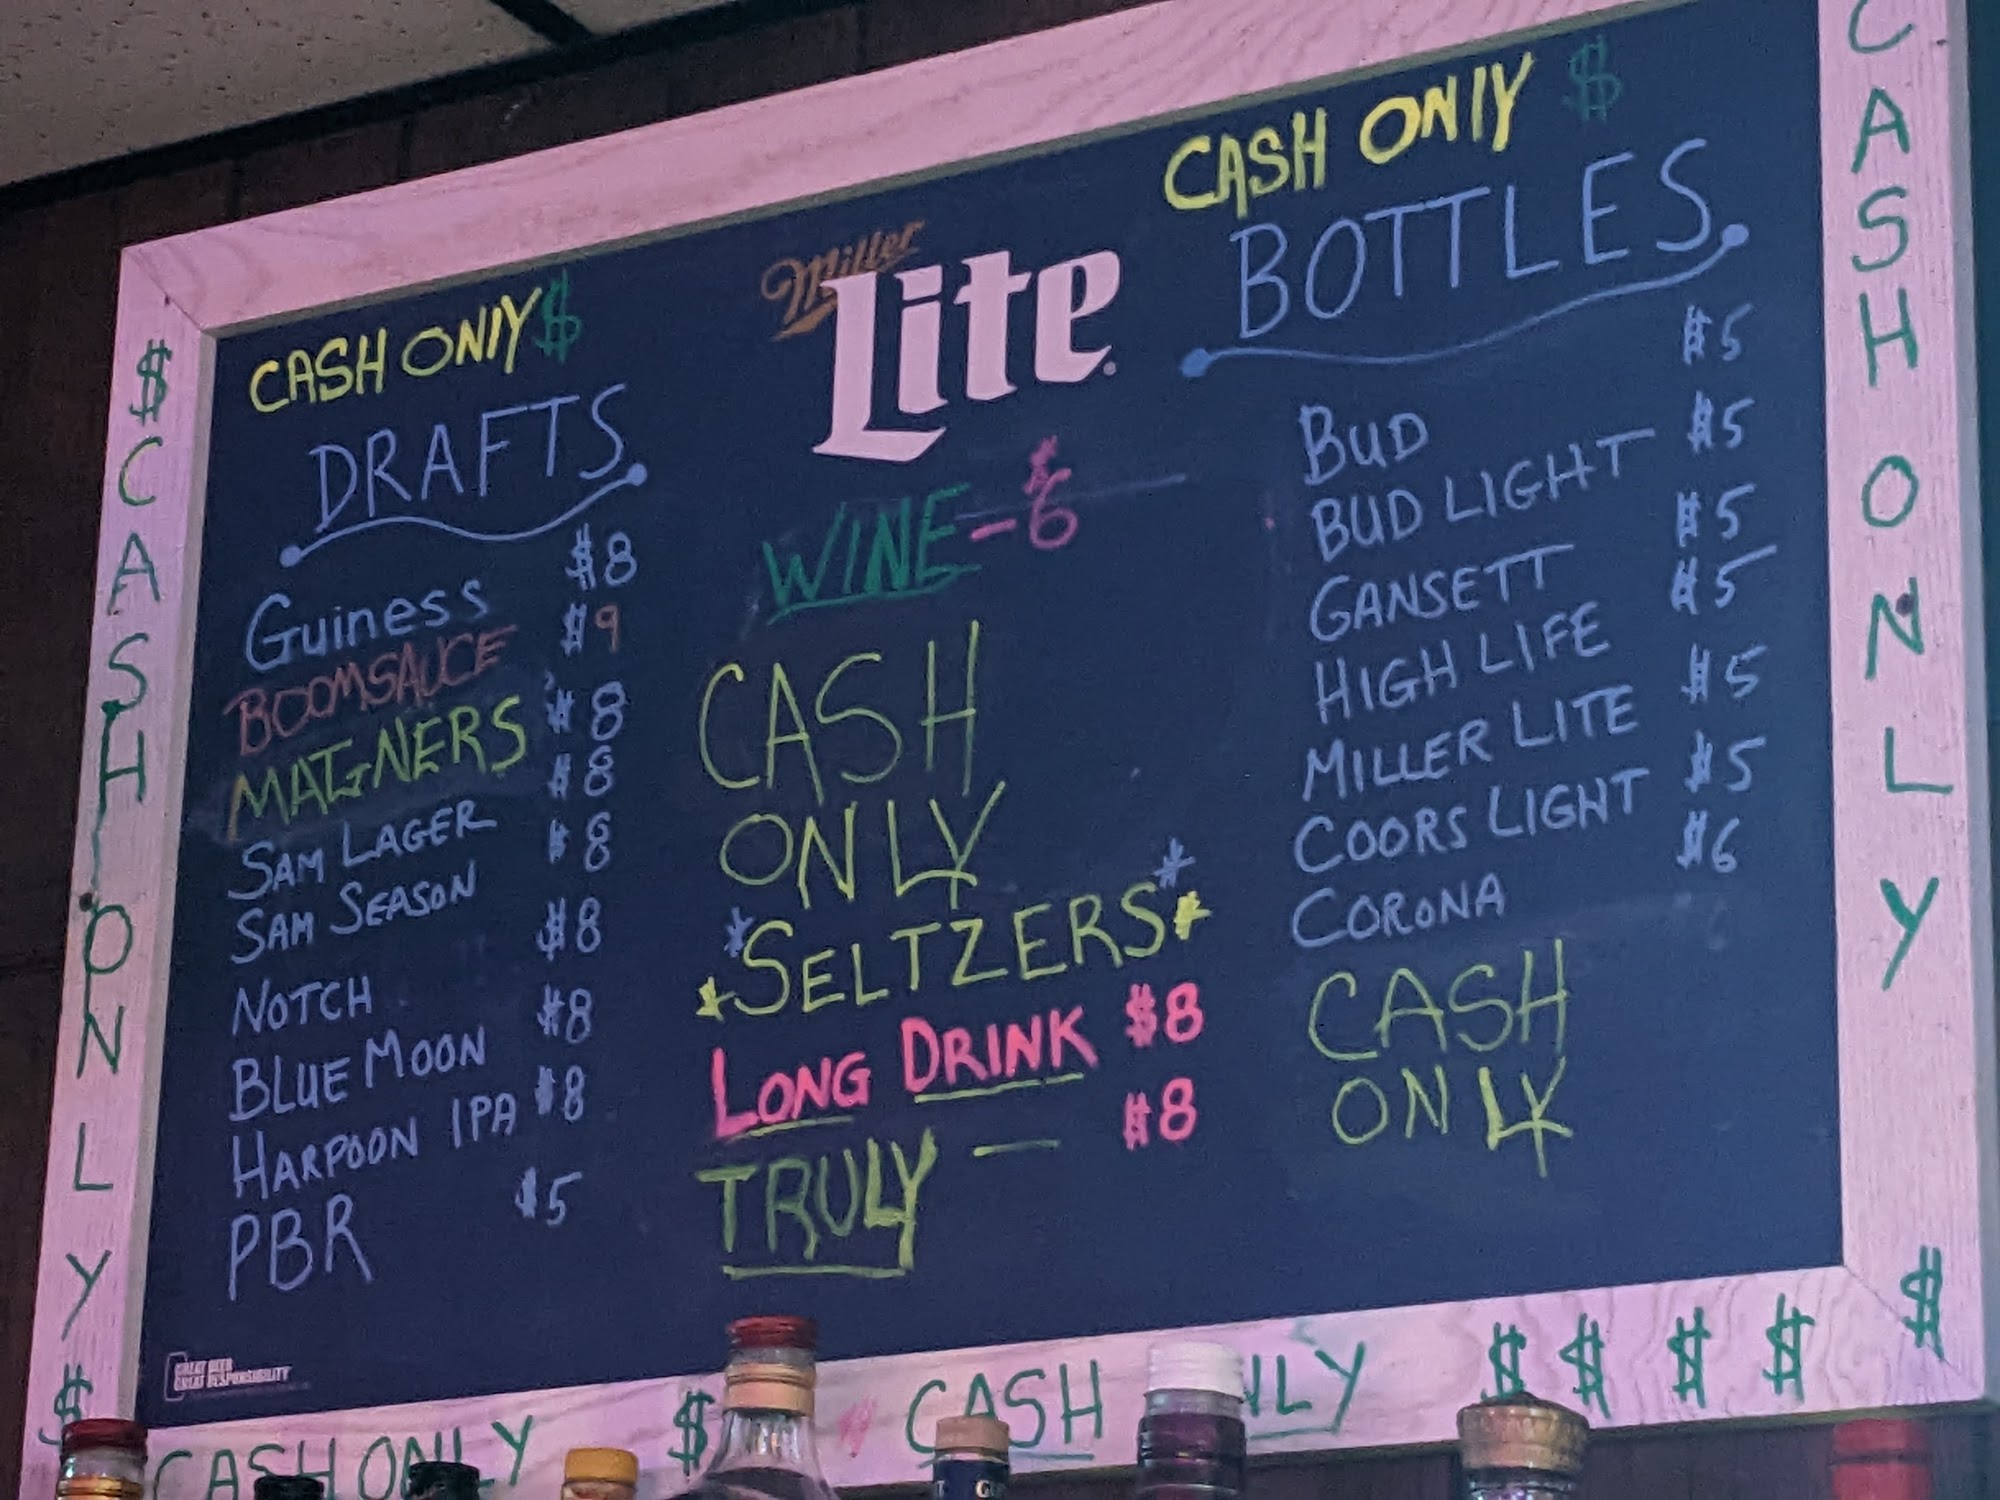 CASH ONLY $
DRAFTS
Guiness $8
BOOMSAUCE $9
MAGNERS $8
SAM LAGER $8
SAM SEASON $8
NOTCH $8
BLUE MOON $8
HARPOON IPA $8
PBR $5
GREAT BEER
GREAT RESPONSIBILITY
Miller
Lite
WINE - $6
CASH
ONLY
*SELTZERS*
LONG DRINK $8
TRULY — $8
CASH ONLY $
BOTTLES
BUD $5
BUD LIGHT $5
GANSETT $5
HIGH LIFE $5
MILLER LITE $5
COORS LIGHT $5
CORONA $6
CASH
ONLY
$ CASH ONLY $
CASH ONLY $
CASH ONLY $ CASH NLY $ $ $ $